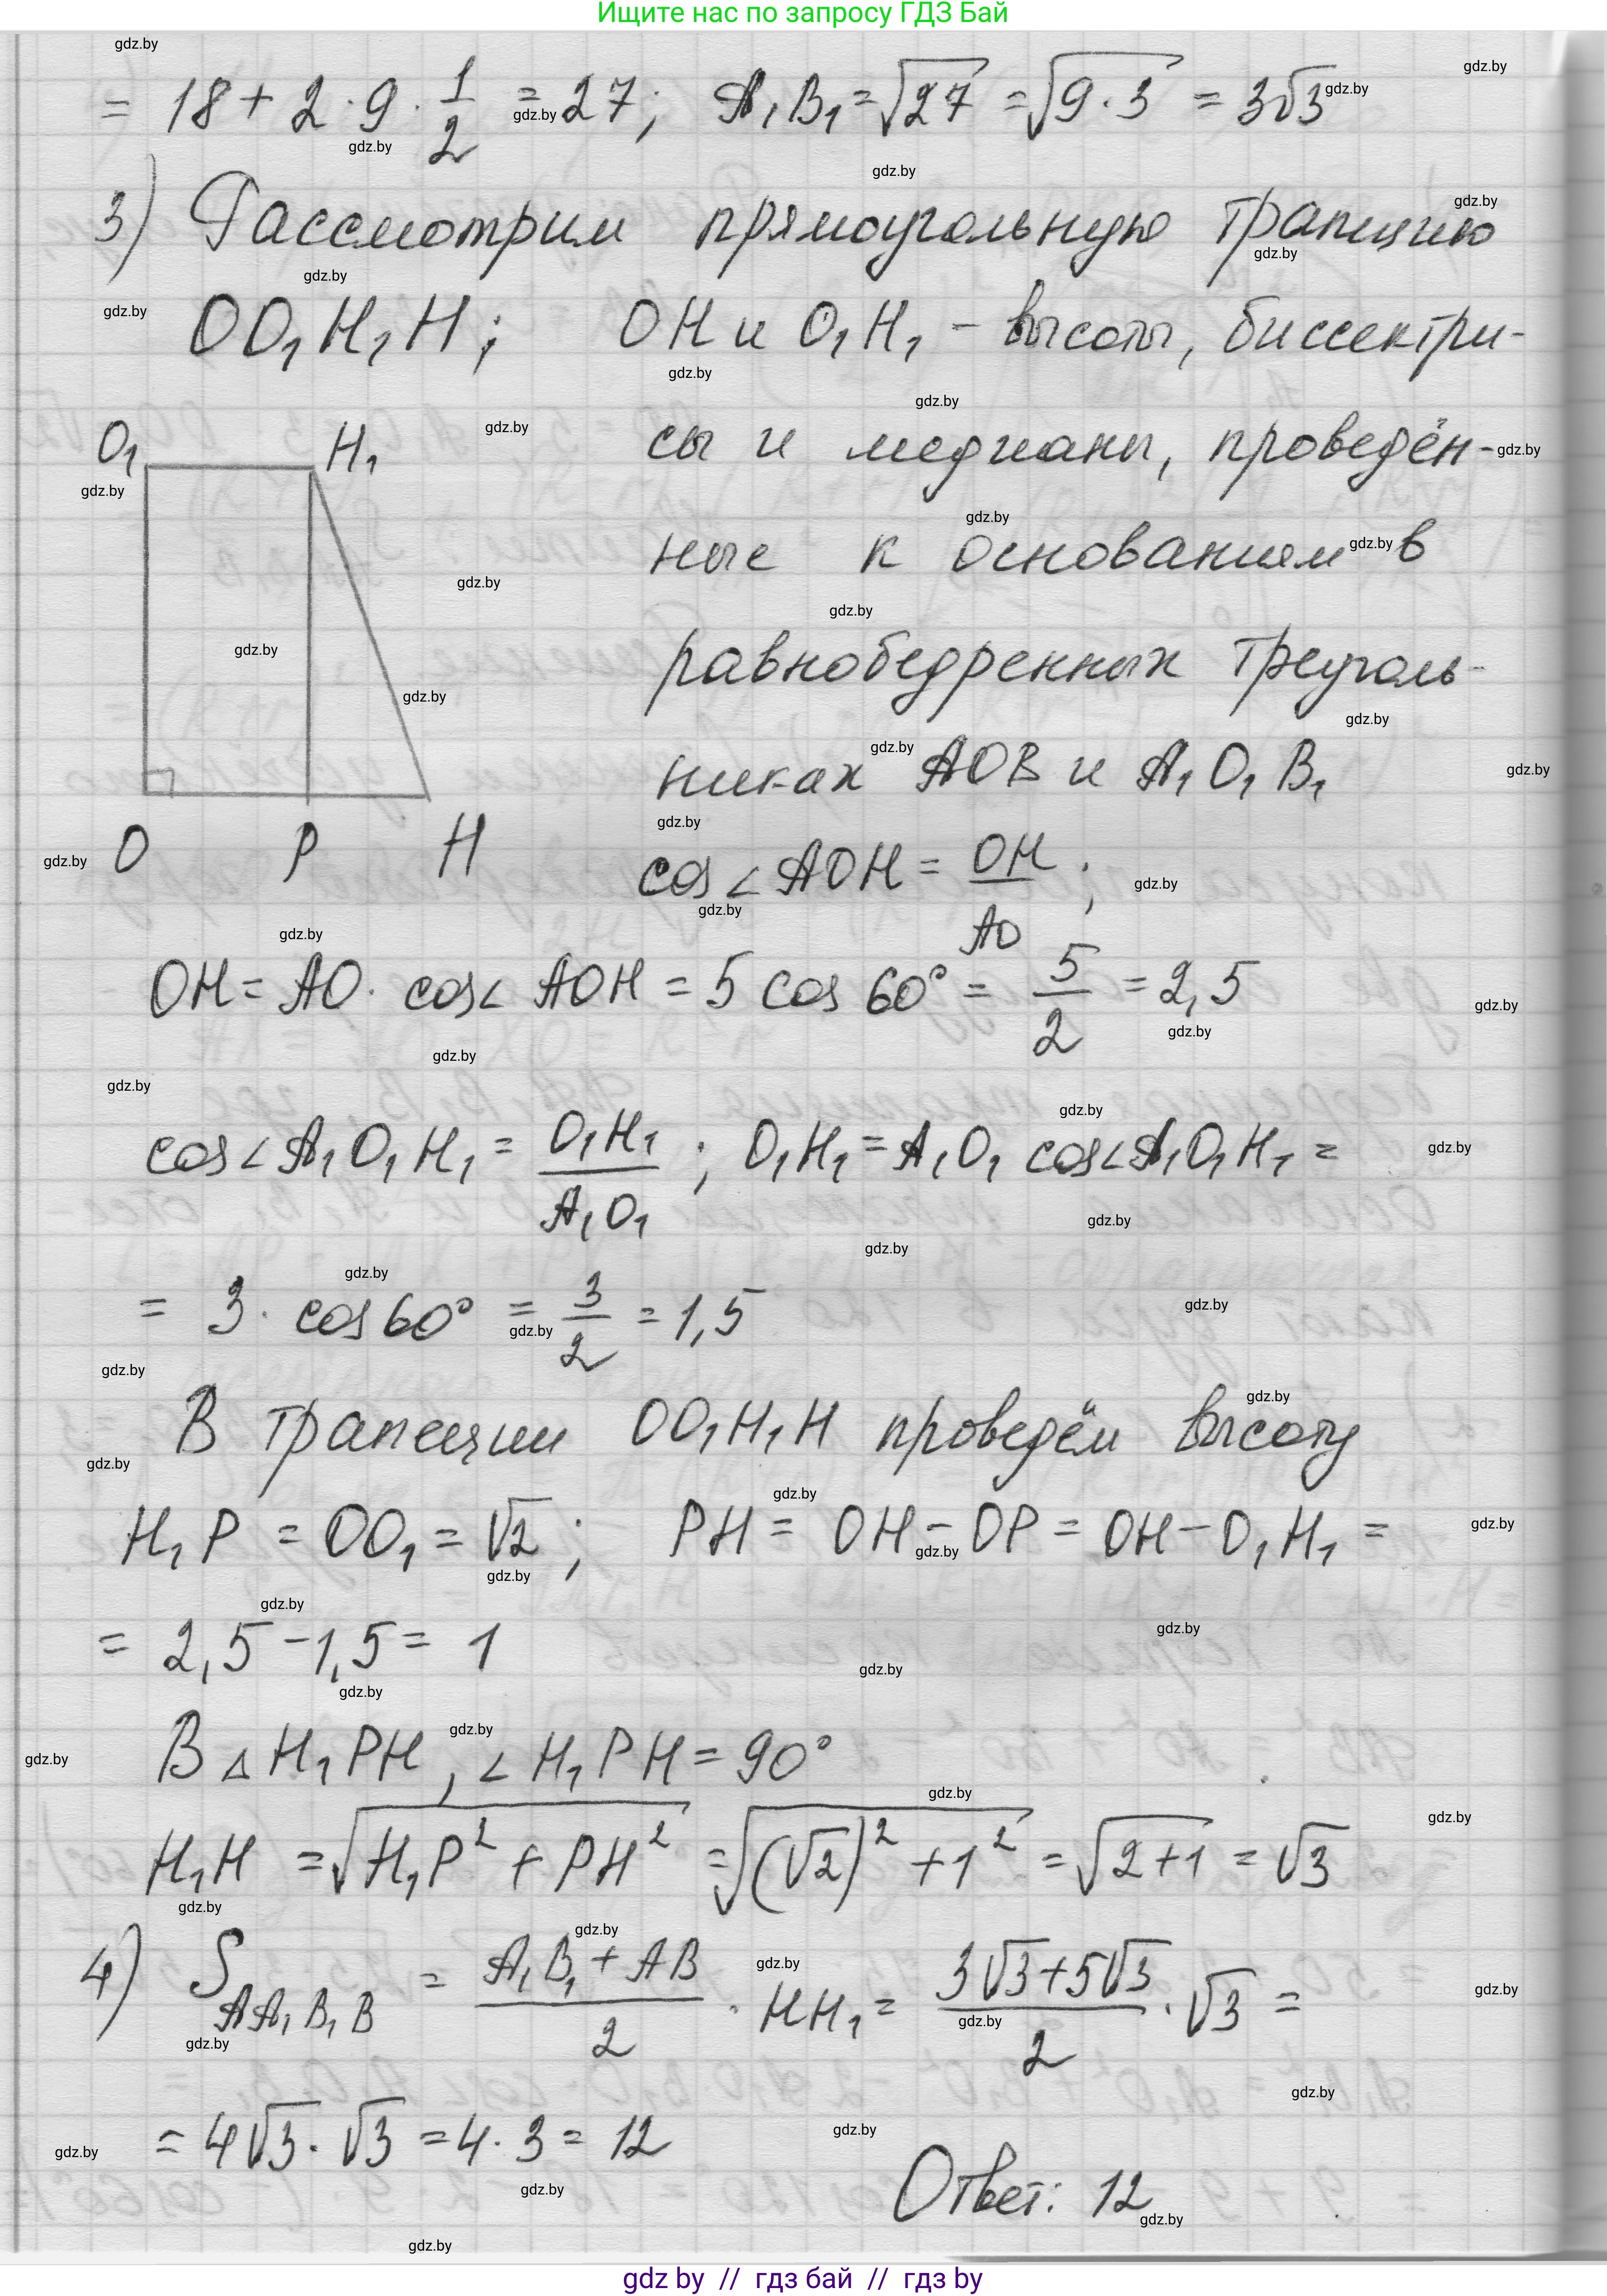 Ищите нас по запросу ГДЗ Бай
= 18 + 2 · 9 · 1/2 = 27; A₁B₁ = √27 = √(9 · 3) = 3√3
3) Рассмотрим прямоугольную трапецию
OO₁H₁H; OH и O₁H₁ – высоты, биссектри-
O₁ H₁
сы и медианы, проведён-
ные к основаниям в
равнобедренных треуголь-
никах AOB и A₁O₁B₁
O P H
cos∠AOH = OH/AO;
OH = AO · cos∠AOH = 5 cos 60° = 5/2 = 2,5
cos∠A₁O₁H₁ = O₁H₁/A₁O₁; O₁H₁ = A₁O₁ cos∠A₁O₁H₁ =
= 3 · cos 60° = 3/2 = 1,5
В трапеции OO₁H₁H проведём высоту
H₁P = OO₁ = √2; PH = OH – OP = OH – O₁H₁ =
= 2,5 – 1,5 = 1
В △H₁PH, ∠H₁PH = 90°
H₁H = √(H₁P² + PH²) = √((√2)² + 1²) = √(2+1) = √3
4) S_AA₁B₁B = (A₁B₁ + AB)/2 · HH₁ = (3√3 + 5√3)/2 · √3 =
= 4√3 · √3 = 4 · 3 = 12
Ответ: 12
gdz by // гдз бай // гдз by